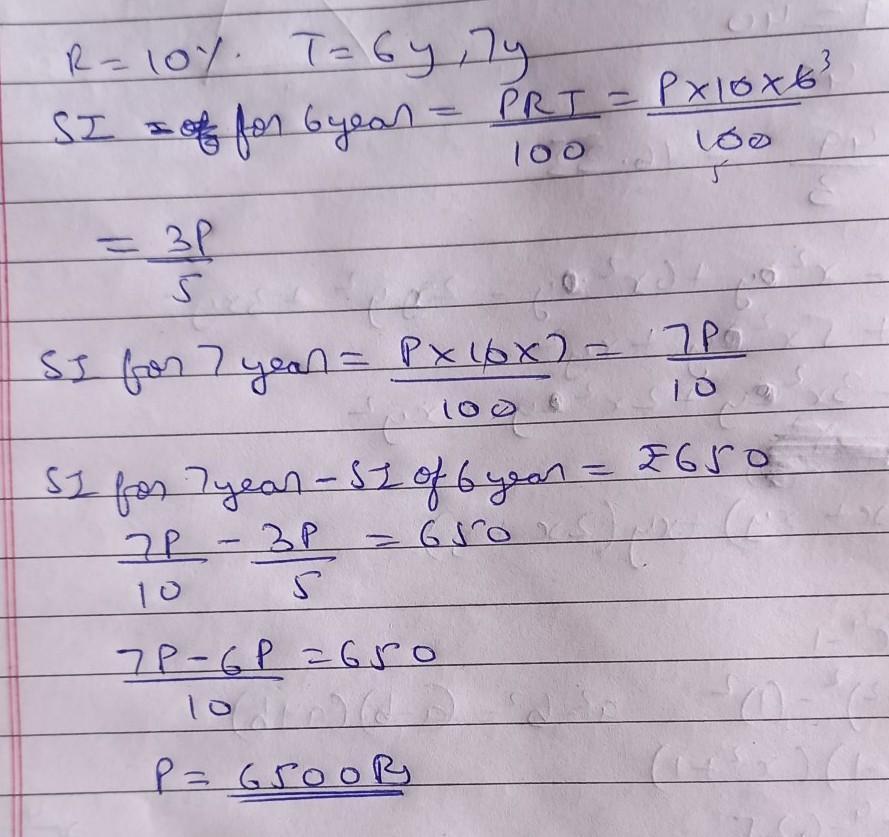 R = 10%. T = 6y, 7y
SI = for 6 year = PRT/100 = P×10×6 3/100 5
= 3P/5
SI for 7 year = P×10×7/100 = 7P/10
SI for 7 year - SI of 6 year = ₹650
7P/10 - 3P/5 = 650
7P-6P/10 = 650
P = 6500Rs